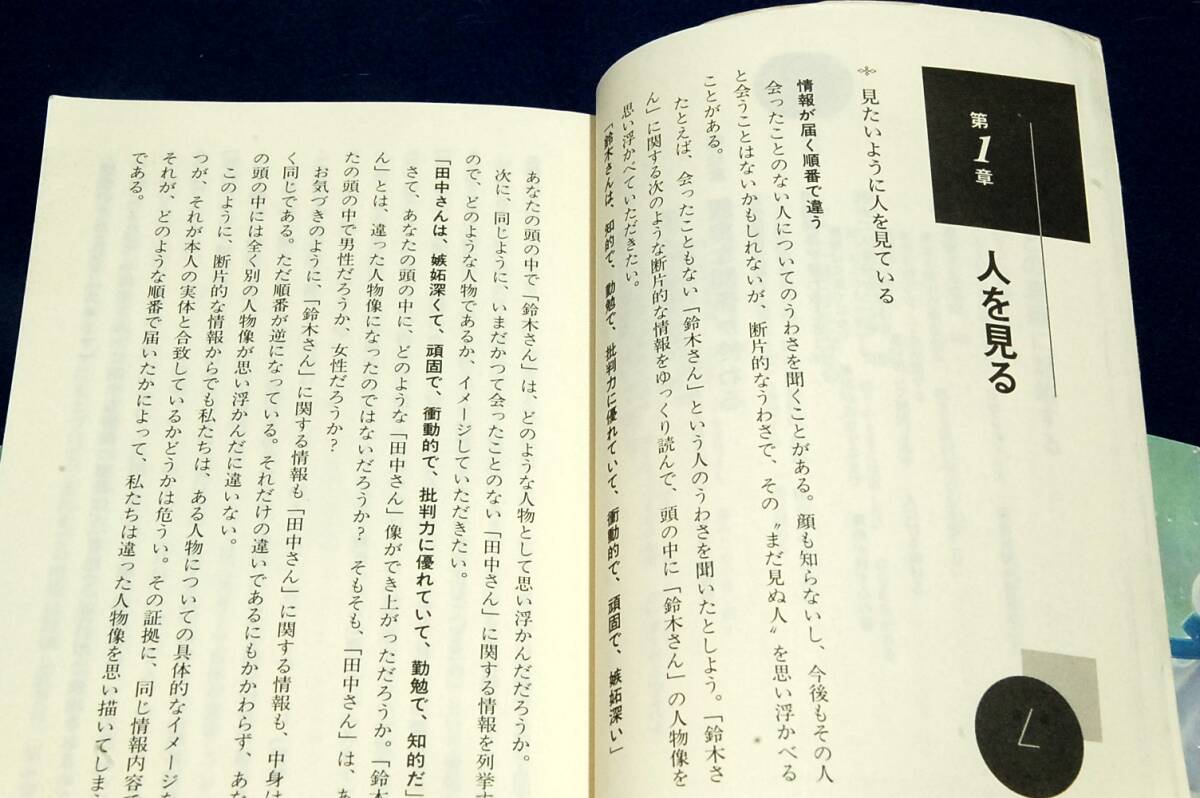 第1章
人を見る
見たいように人を見ている
情報が届く順番で違う
会ったことのない人についてのうわさを聞くことがある。顔も知らないし、今後もその人
と会うことはないかもしれないが、断片的なうわさで、その〝まだ見ぬ人〟を思い浮かべる
ことがある。
たとえば、会ったこともない「鈴木さん」という人のうわさを聞いたとしよう。「鈴木さ
ん」に関する次のような断片的な情報をゆっくり読んで、頭の中に「鈴木さん」の人物像を
思い浮かべていただきたい。
「鈴木さんは、知的で、勤勉で、批判力に優れていて、衝動的で、頑固で、嫉妬深い」
あなたの頭の中で「鈴木さん」は、どのような人物として思い浮かんだだろうか。
次に、同じように、いまだかつて会ったことのない「田中さん」に関する情報を列挙す
ので、どのような人物であるか、イメージしていただきたい。
「田中さんは、嫉妬深くて、頑固で、衝動的で、批判力に優れていて、勤勉で、知的だ」
さて、あなたの頭の中に、どのような「田中さん」像ができ上がっただろうか。「鈴木
ん」とは、違った人物像になったのではないだろうか？ そもそも、「田中さん」は、あ
たの頭の中で男性だろうか、女性だろうか？
お気づきのように、「鈴木さん」に関する情報も「田中さん」に関する情報も、中身は
く同じである。ただ順番が逆になっている。それだけの違いであるにもかかわらず、あな
の頭の中には全く別の人物像が思い浮かんだに違いない。
このように、断片的な情報からでも私たちは、ある人物についての具体的なイメージを
つが、それが本人の実体と合致しているかどうかは危うい。その証拠に、同じ情報内容で
それが、どのような順番で届いたかによって、私たちは違った人物像を思い描いてしま
である。